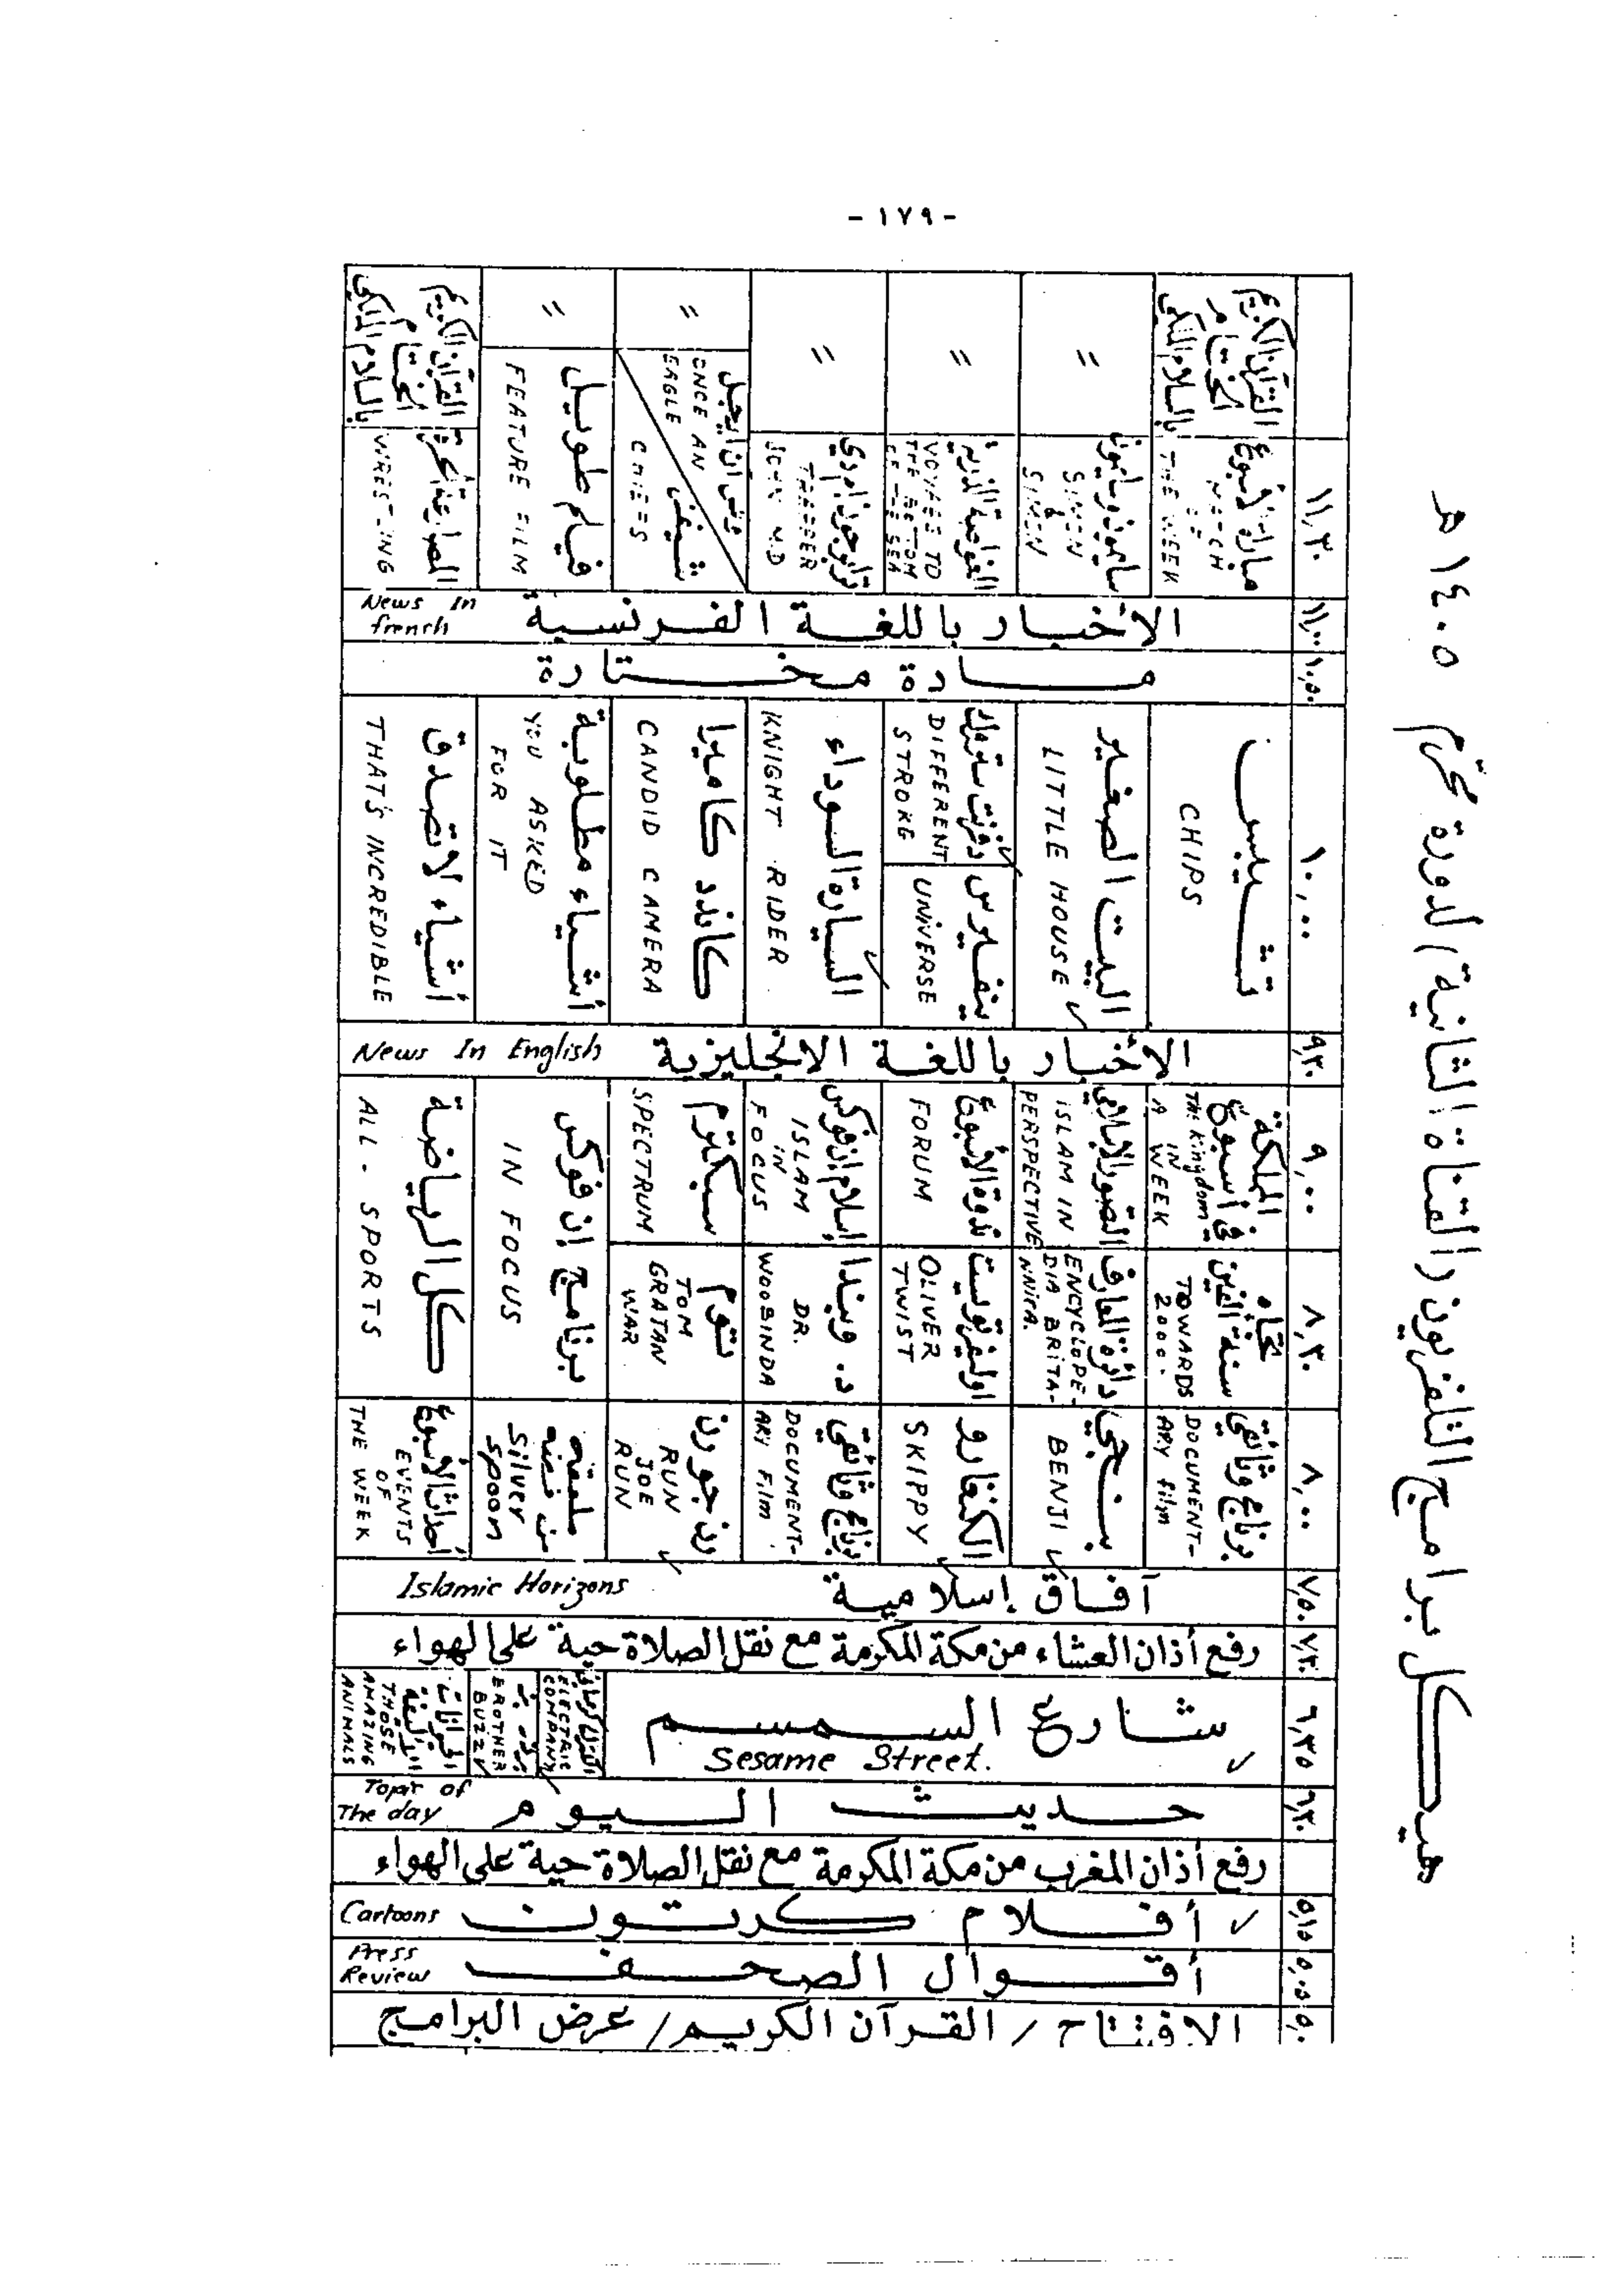 - ١٧٩ -
هيكل برامج التلفزيون (القناة الثانية) لدورة محرم ١٤٠٥ هـ
٥,٠٠
الافتتاح / القرآن الكريم / عرض البرامج
٥,٠٥
أقوال الصحف
Press
Review
٥,١٥
أفلام كرتون
Cartoons
رفع أذان المغرب من مكة المكرمة مع نقل الصلاة حية على الهواء
٦,٣٠
حديث اليوم
Topic of
The day
٦,٣٥
شارع السمسم
Sesame Street.
ELECTRIC
COMPANY
BROTHER
BUZZ
THOSE
AMAZING
ANIMALS
٧,٣٠
رفع أذان العشاء من مكة المكرمة مع نقل الصلاة حية على الهواء
٧,٥٠
آفاق إسلامية
Islamic Horizons
٨,٠٠
برنامج وثائقي
DOCUMENT-
ARY film
بنجي
BENJI
الكنغارو
SKIPPY
برنامج وثائقي
DOCUMENT-
ARY Film
رن جو رن
RUN
JOE
RUN
ملعقه
من فضه
Silver
spoon
أحداث الأسبوع
EVENTS
OF
THE WEEK
٨,٣٠
تجاه
سنة ألفين
TOWARDS
2000.
دائرة المعارف
ENCYCLOPE-
DIA BRITA-
NNICA.
اوليفر تويست
OLIVER
TWIST
د. وبندا
DR.
WOOBINDA
توم
TOM
GRATAN
WAR
برنامج إن فوكس
IN FOCUS
كل الرياضة
ALL - SPORTS
٩,٠٠
المملكة
في أسبوع
THE Kingdom
IN
A WEEK
ISLAM IN
PERSPECTIVE
ندوة الأسبوع
FORUM
إسلام إن فوكس
ISLAM
IN
FOCUS
سبكتروم
SPECTRUM
٩,٣٠
الأخبار باللغة الانجليزية
News In English
١٠,٠٠
تشيبس
CHIPS
البيت الصغير
LITTLE HOUSE
دفرنت ستروك
DIFFERENT
STROKE
ينفيرس
UNIVERSE
السيارة السوداء
KNIGHT RIDER
كاندد كاميرا
CANDID CAMERA
أشياء مطلوبة
YOU ASKED
FOR IT
أشياء لاتصدق
THAT'S INCREDIBLE
١٠,٥٠
مادة مختارة
١١,٠٠
الأخبار باللغة الفرنسية
News In
french
١١,٣٠
مباراة الأسبوع
MATCH
OF
THE WEEK
سايمون وسايمون
SIMON
&
SIMON
الغواصة الذرية
VOYAGE TO
THE BOTTOM
OF THE SEA
ترابر جون ام دي
TRAPPER
JOHN M.D
ونس ان ايجل
ONCE AN
EAGLE
شيفز
CHIEFS
فيلم طويل
FEATURE FILM
المصارعة الحرة
WRESTLING
القرآن الكريم
الختام
بالسلام الملكي
"
"
"
"
"
القرآن الكريم
الختام
بالسلام الملكي